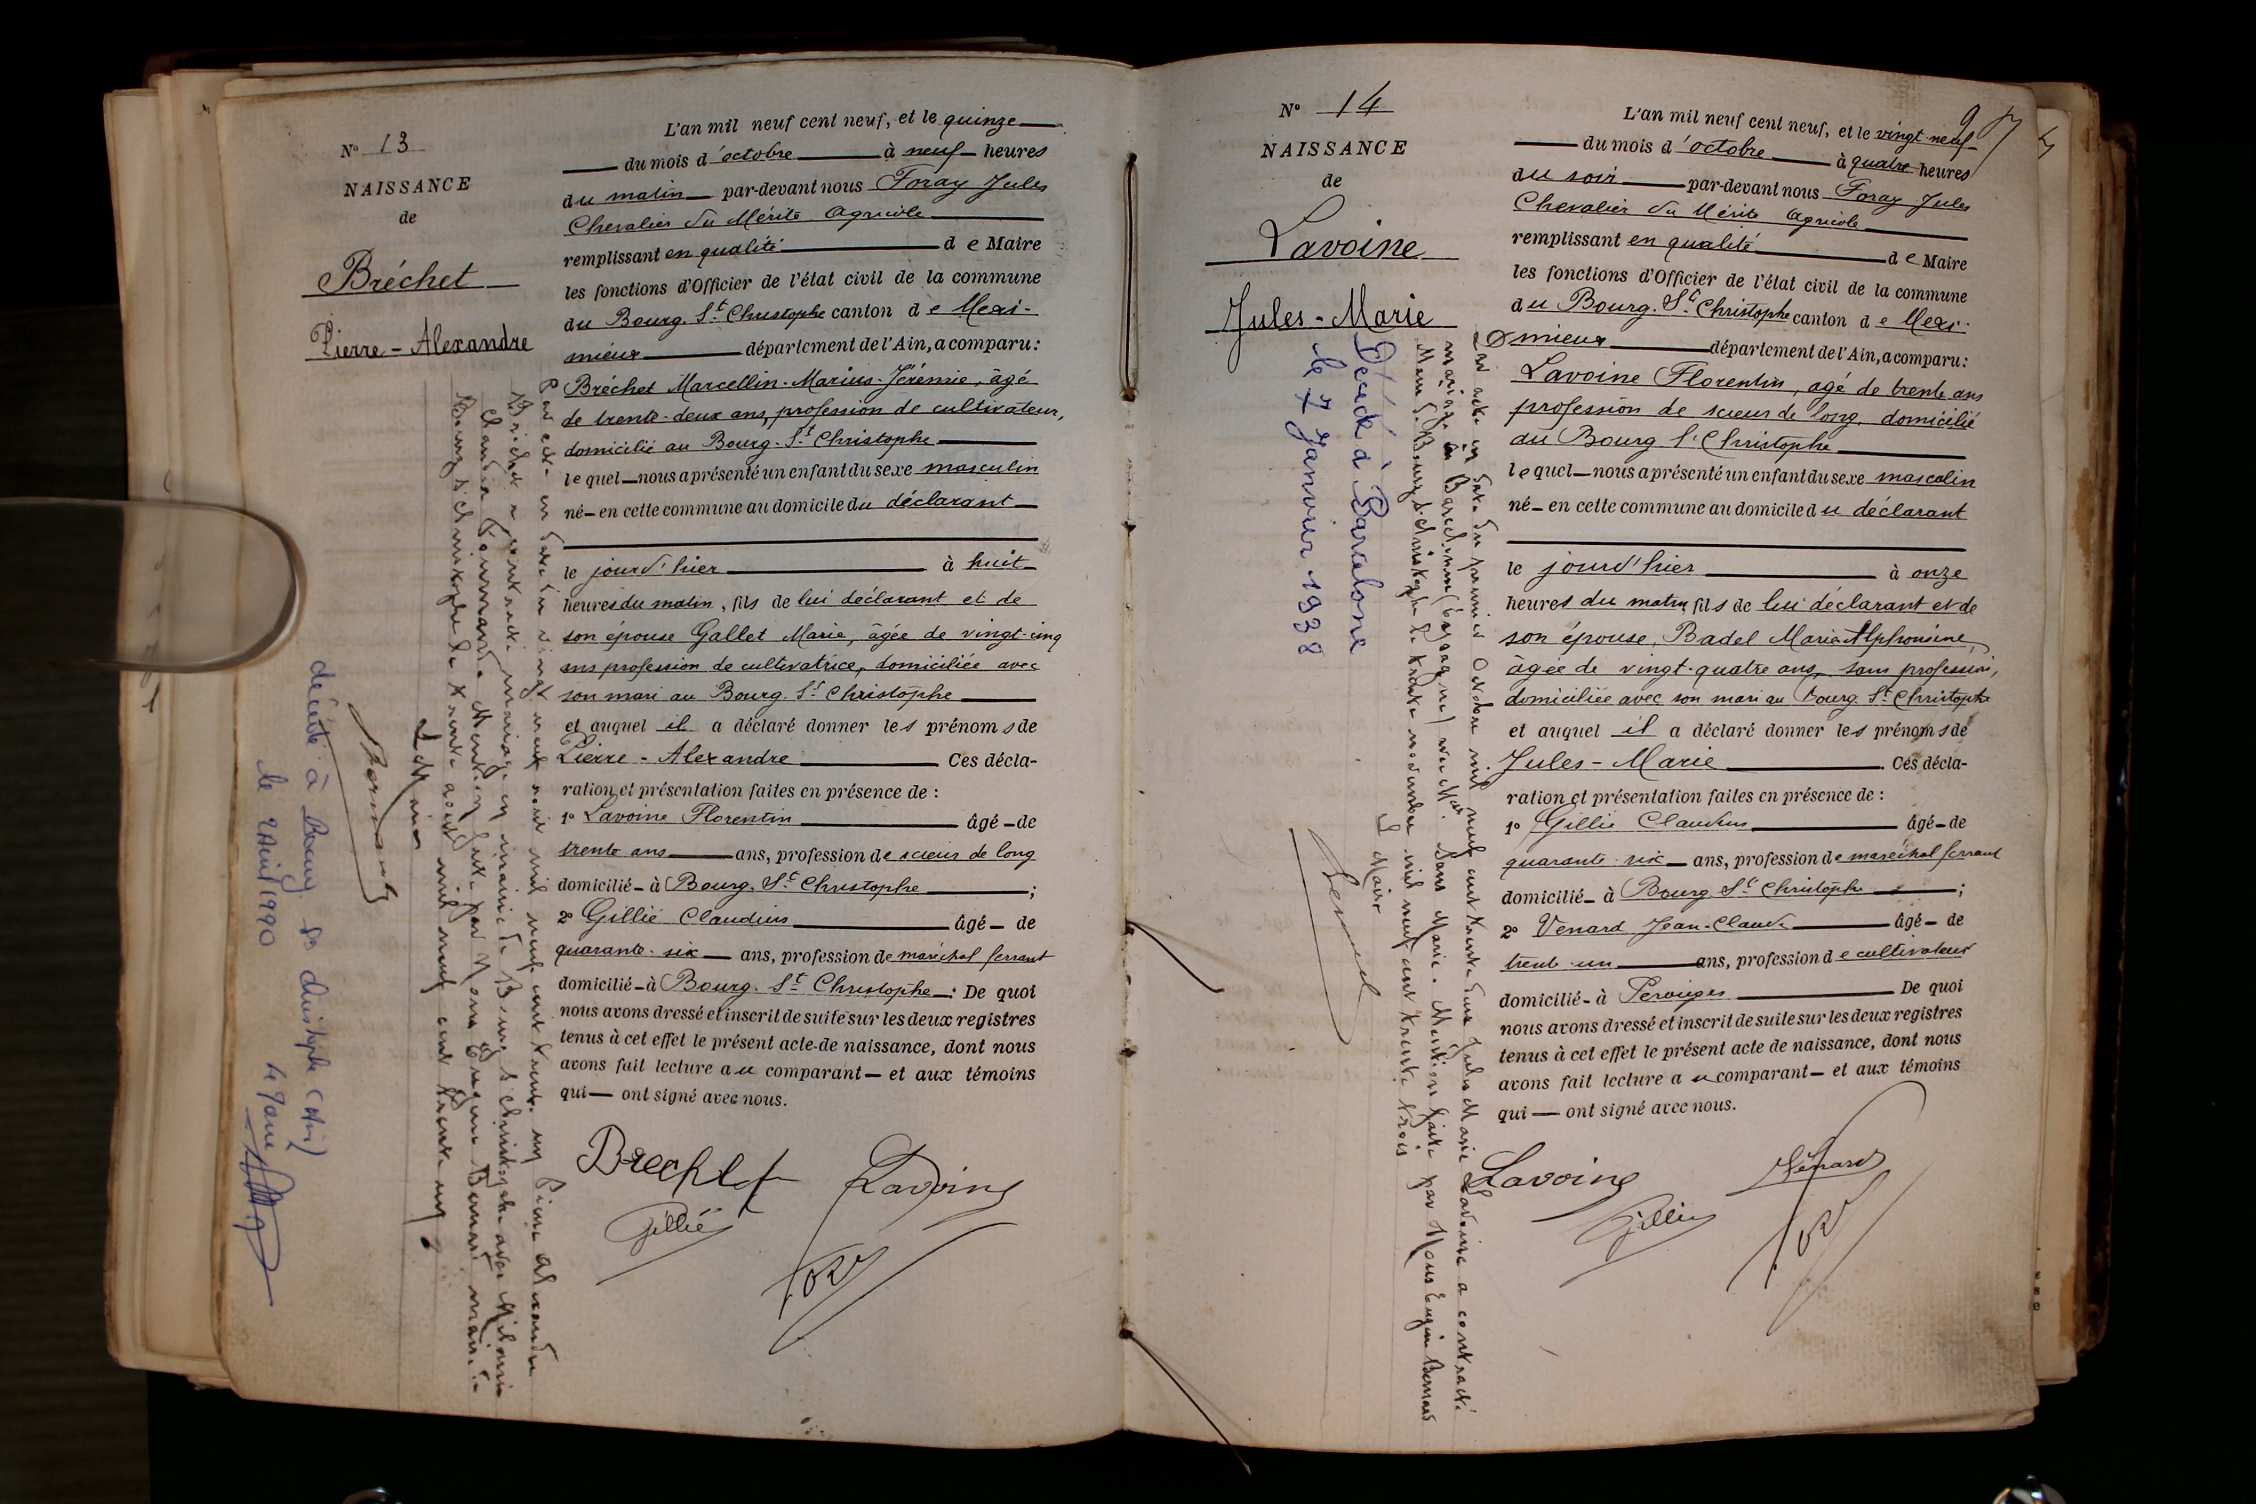 N° 13
NAISSANCE
de
Bréchet
Pierre-Alexandre
L'an mil neuf cent neuf, et le quinze
du mois d'octobre à neuf heures
du matin par-devant nous Foray Jules
Chevalier du Mérite Agricole
remplissant en qualité de Maire
les fonctions d'Officier de l'état civil de la commune
du Bourg. St Christophe canton de Mexi-
mieux département de l'Ain, a comparu:
Bréchet Marcellin-Marius-Jérémie, âgé
de trente-deux ans, profession de cultivateur,
domicilié au Bourg-St Christophe
lequel nous a présenté un enfant du sexe masculin
né en cette commune au domicile du déclarant
le jourd'hier à huit
heures du matin, fils de lui déclarant et de
son épouse Gallet Marie, âgée de vingt-cinq
ans profession de cultivatrice, domiciliée avec
son mari au Bourg. St Christophe
et auquel il a déclaré donner les prénoms de
Pierre-Alexandre Ces décla-
ration et présentation faites en présence de :
1° Lavoine Florentin âgé de
trente ans ans, profession de scieur de long
domicilié à Bourg. St Christophe ;
2° Gillié Claudius âgé de
quarante-six ans, profession de maréchal ferrant
domicilié à Bourg. St Christophe : De quoi
nous avons dressé et inscrit de suite sur les deux registres
tenus à cet effet le présent acte de naissance, dont nous
avons fait lecture au comparant et aux témoins
qui ont signé avec nous.
Brechet Lavoine
Gillié
Par acte en date du vingt neuf août mil neuf cent trente un Pierre Alexandre
Bréchet a contracté mariage en mairie de Bourg St Christophe avec
Mention faite par Nous Eugène Bernard maire de
Bourg St Christophe le trente août mil neuf cent trente un
Le Maire
décédé à Bourg St Christophe (Ain)
le 2 Avril 1990
N° 14
NAISSANCE
de
Lavoine
Jules-Marie
L'an mil neuf cent neuf, et le vingt-neuf
du mois d'octobre à quatre heures
du soir par-devant nous Foray Jules
Chevalier du Mérite Agricole
remplissant en qualité de Maire
les fonctions d'Officier de l'état civil de la commune
du Bourg. St Christophe canton de Mexi-
mieux département de l'Ain, a comparu:
Lavoine Florentin, agé de trente ans
profession de scieur de long, domicilié
au Bourg St Christophe
lequel nous a présenté un enfant du sexe masculin
né en cette commune au domicile du déclarant
le jourd'hier à onze
heures du matin, fils de lui déclarant et de
son épouse, Badel Marie Alphonsine,
âgée de vingt-quatre ans, sans profession,
domiciliée avec son mari au Bourg. St Christophe
et auquel il a déclaré donner les prénoms de
Jules-Marie . Ces décla-
ration et présentation faites en présence de :
1° Gillié Claudius âgé de
quarante six ans, profession de maréchal ferrant
domicilié à Bourg. St Christophe ;
2° Venard Jean-Claude âgé de
trente un ans, profession de cultivateur
domicilié à Perouges De quoi
nous avons dressé et inscrit de suite sur les deux registres
tenus à cet effet le présent acte de naissance, dont nous
avons fait lecture au comparant et aux témoins
qui ont signé avec nous.
Lavoine Vénard
Gillié
Par acte en date du premier Octobre mil neuf cent trente deux Jules Marie Lavoine a contracté
mariage à Barcelone (Espagne) avec Sans Marie. Mention faite par Nous Eugène Bernard
Maire de Bourg St Christophe le trente novembre mil neuf cent trente trois
Le Maire
Décédé à Barcelone
le 7 Janvier 1938